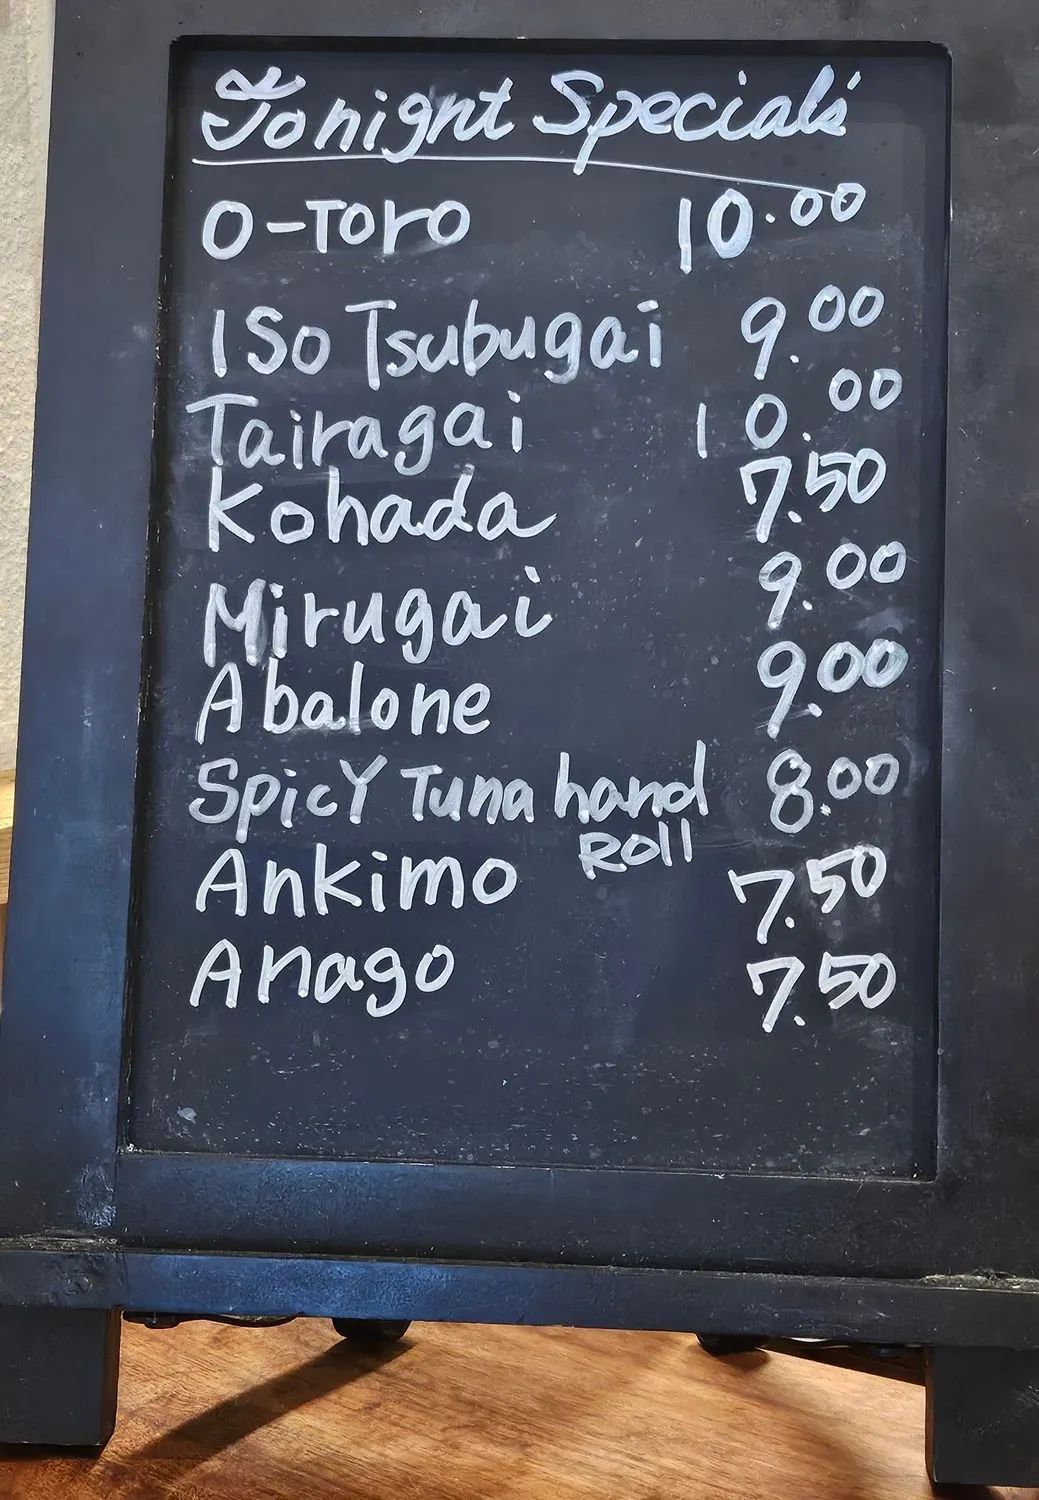 Tonight Specials
O-Toro 10.00
Iso Tsubugai 9.00
Tairagai 10.00
Kohada 7.50
Mirugai 9.00
Abalone 9.00
Spicy Tuna hand 8.00
Roll
Ankimo 7.50
Anago 7.50